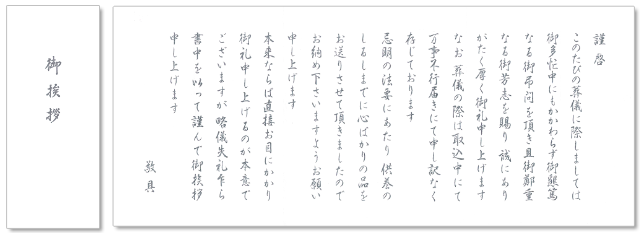 御挨拶
謹啓
このたびの葬儀に際しましては
御多忙中にもかかわらず御懇篤
なる御弔問を頂き且御鄭重
なる御芳志を賜り誠にあり
がたく厚く御礼申し上げます
なお葬儀の際は取込中にて
万事不行届きにて申し訳なく
存じております
忌明の法要にあたり供養の
しるしまでに心ばかりの品を
お送りさせて頂きましたので
お納め下さいますようお願い
申し上げます
本来ならば直接お目にかかり
御礼申し上げるのが本意で
ございますが略儀失礼乍ら
書中を以って謹んで御挨拶
申し上げます
敬具